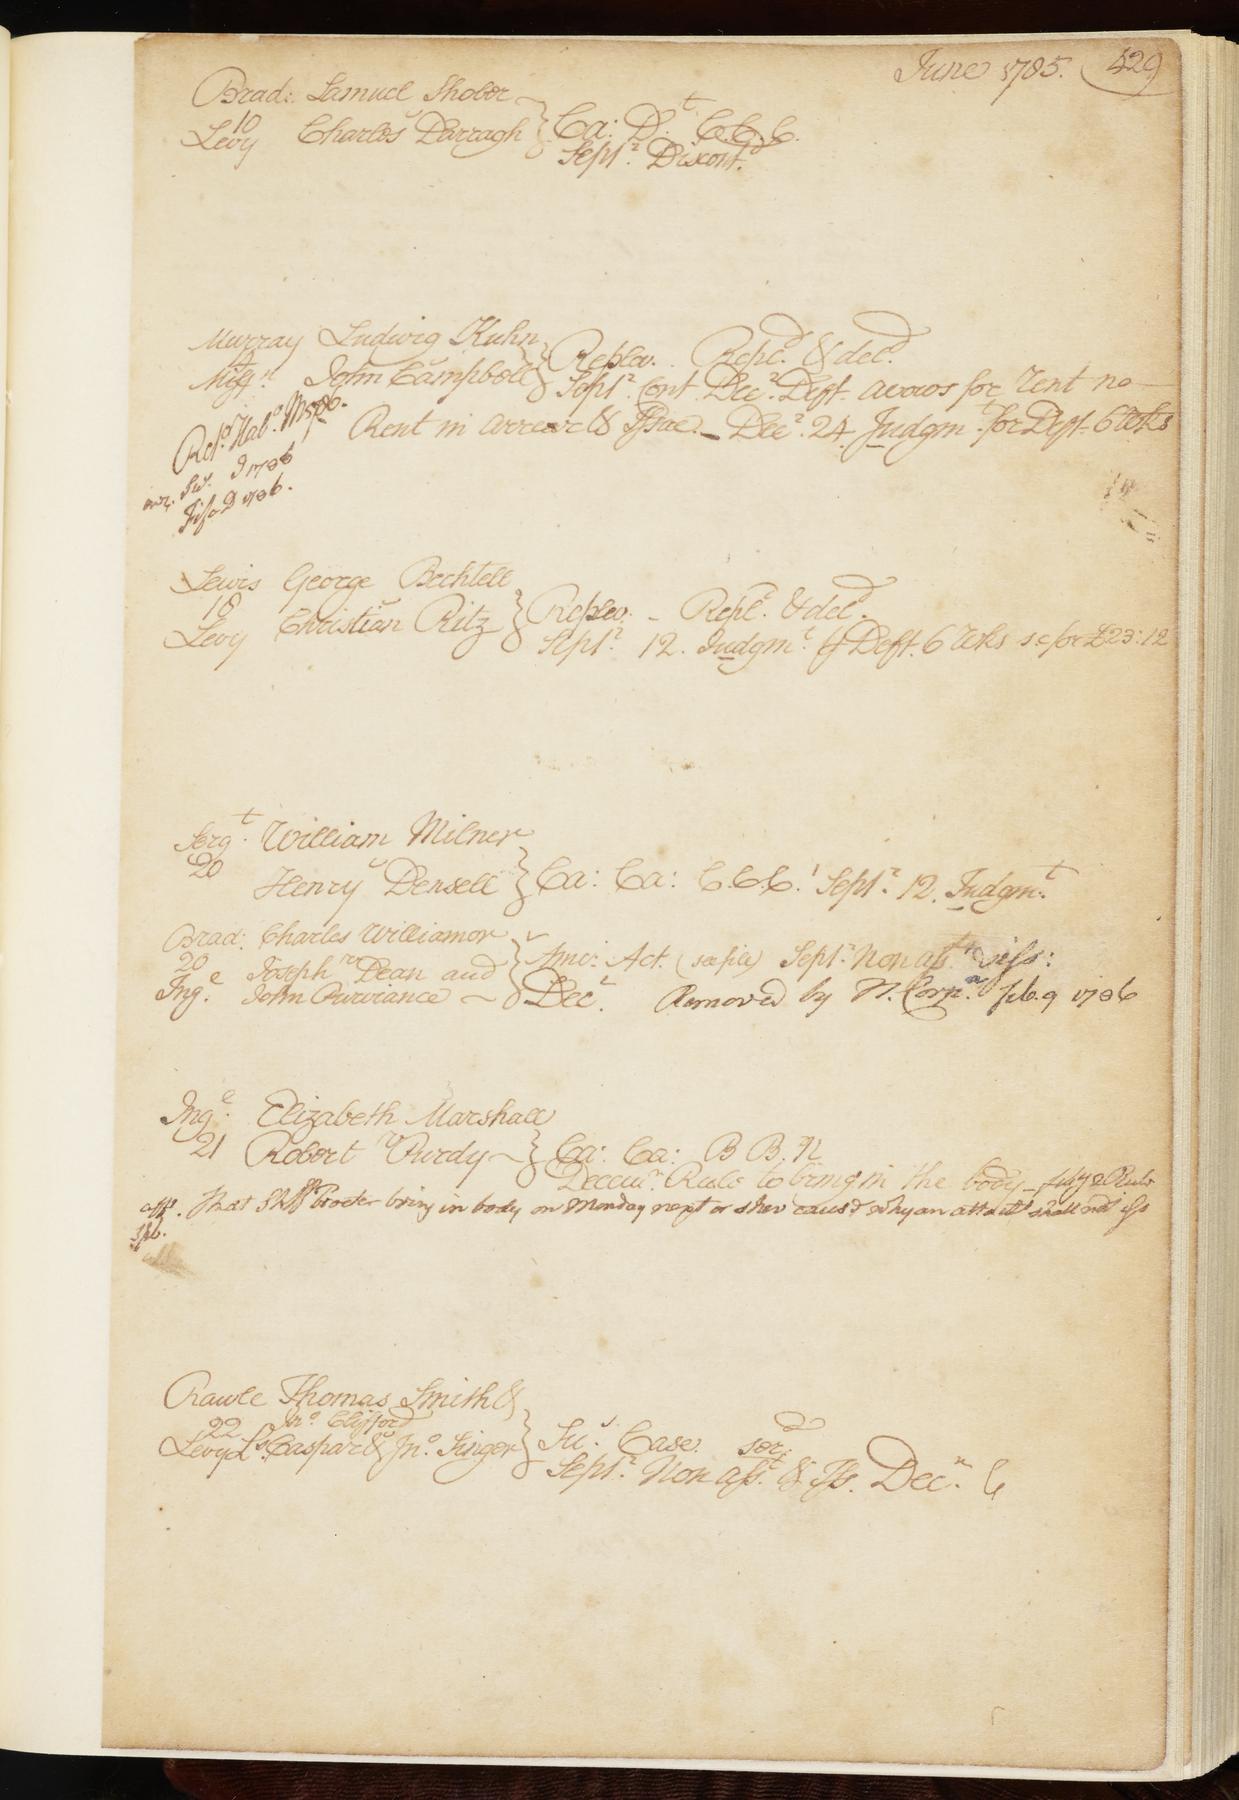 June 1785. 429
Brad: Samuel Shober
10 v
Levy Charles Darragh } Ca: Dt. C.C.C.
Septr. Discontd.
Murray Ludwig Kuhn
v
Miffn. John Campbell } Replev. Repld. & deld.
Septr. Cont. Decr. Deft. avows for rent no
Rent in arrear & Issue. — Decr. 24 Judgmt. for Deft. 6 Wks
Reto. Hab.
1786
D 1786.
Lewis George Bechtell
18 v
Levy Christian Ritz } Replev. - Repld. & deld.
Septr. 12. Judgmt. Deft. 6 Wks s: for £23:12
Sergt. William Milner
20 v
Henry Densell } Ca: Ca: C.C.C. Septr. 12. Judgmt.
Brad: Charles Williamor
20 v
Joseph Dean and } Amic: Act. (see file) Septr. Non asst.
Inge. John Purviance Decr. Removed by H. Corps. Feb. 9 1786
Inge. Elizabeth Marshall
21 v
Robert Purdy } Ca: Ca: B B. N
Decem. Rule to bring in the body — Rule
that Shff Procter bring in body on Monday next or shew cause why an attachtt shall not iss
Rawle Thomas Smith &
Jno. Clifford
22 v
Levy Caspar & Jno. Singer } Su: Case. serd.
Septr. Non asst. & Iss. Decr. C